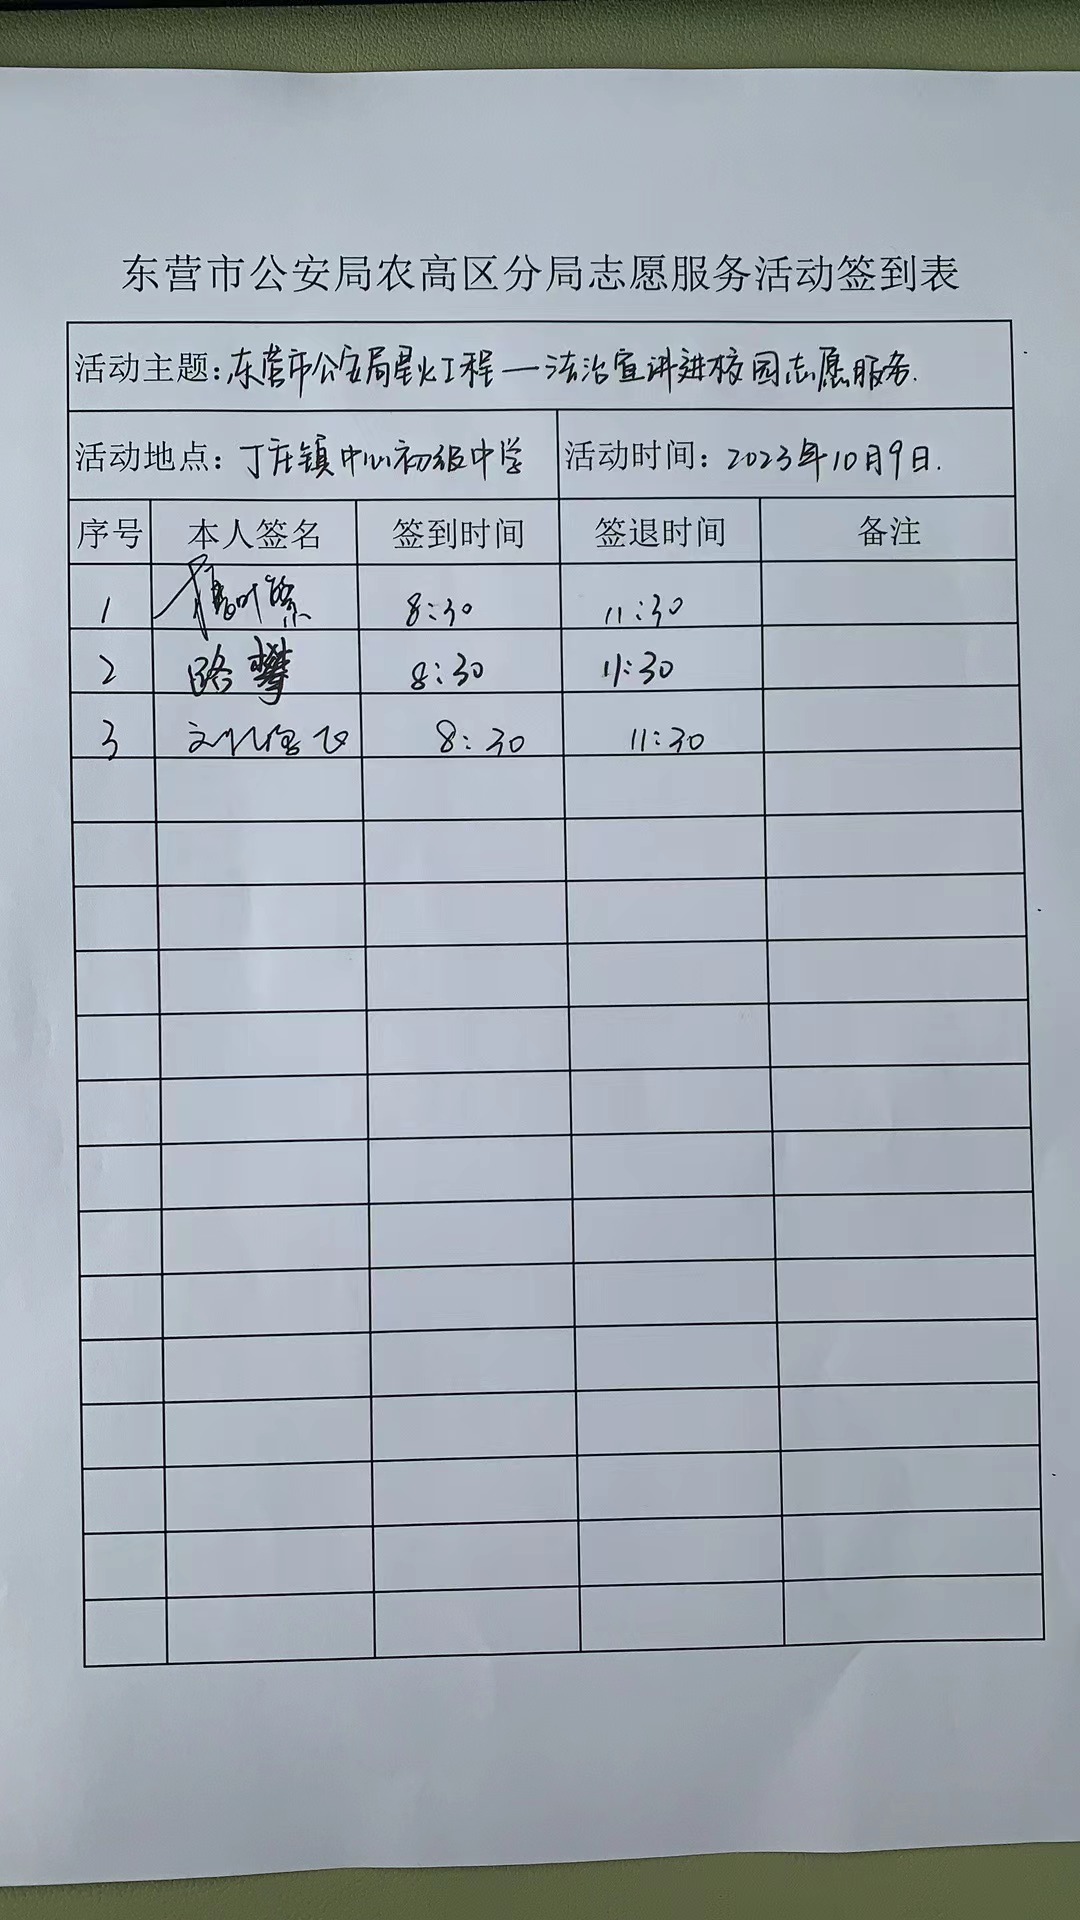 东营市公安局农高区分局志愿服务活动签到表
活动主题：东营市公安局星火工程一法治宣讲进校园志愿服务.
活动地点：丁庄镇中心初级中学 活动时间：2023年10月9日.
序号 本人签名 签到时间 签退时间 备注
1 8:30 11:30
2 路攀 8:30 11:30
3 8:30 11:30